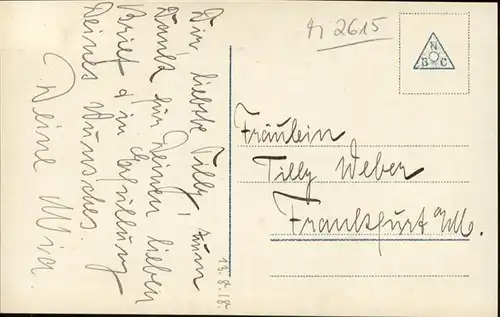 Dir, liebste Tilly, zum
Dank für Deinen lieben
Brief & in Erfüllung
Deines Wunsches.
Deine Mia.
13.8.18.
2615
N
B C
Fräulein
Tilly Weber
Frankfurt a/M.